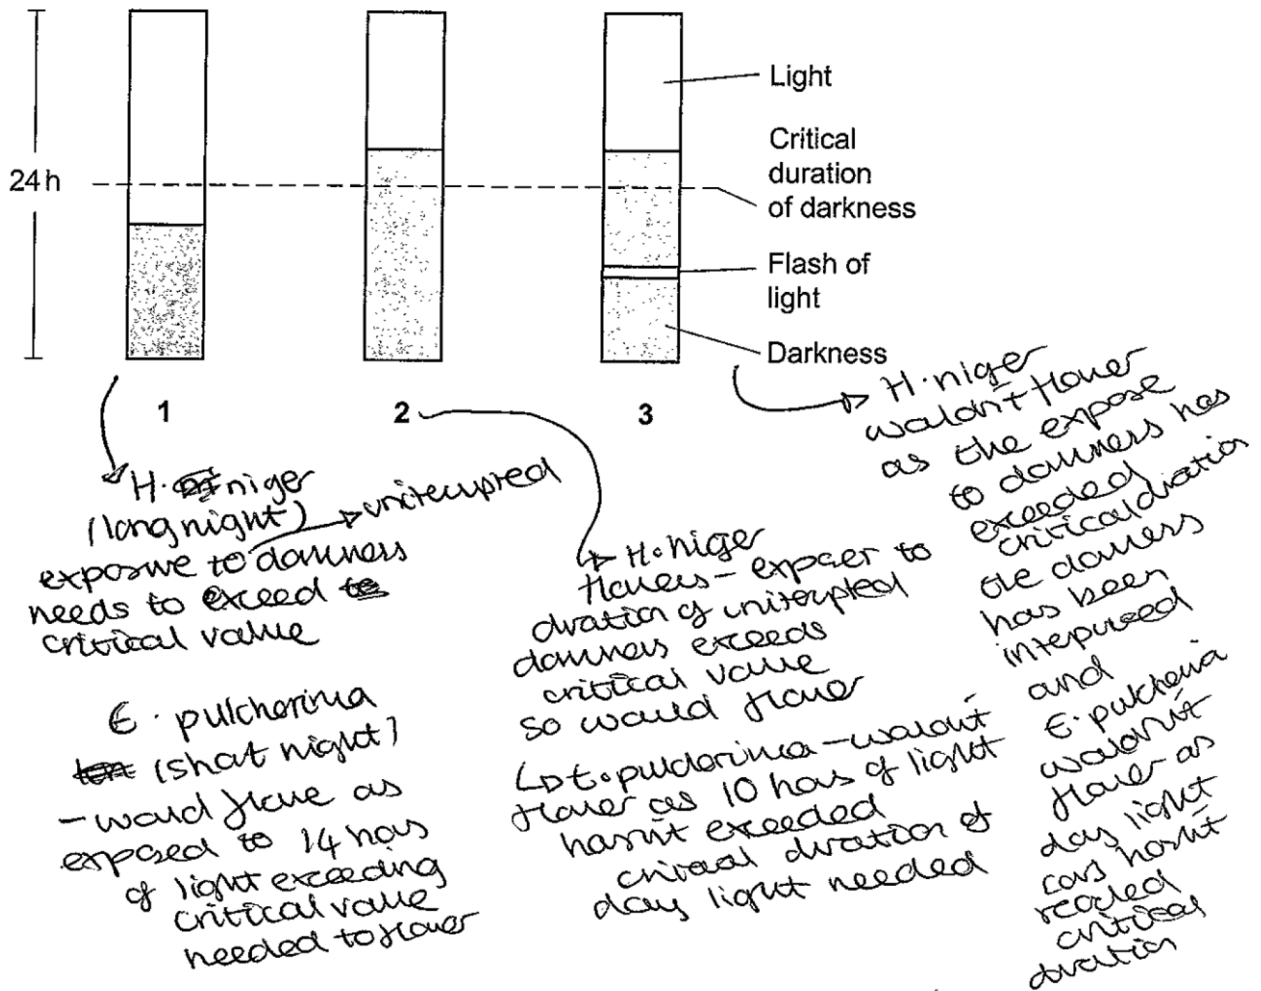 24h
Light
Critical
duration
of darkness
Flash of
light
Darkness
1
2
3
H. niger
(long night)
uniterupted
exposure to darkness
needs to exceed
critical value
E. pulcherima
(short night)
- would flower as
exposed to 14 hours
of light exceeding
critical value
needed to flower
H. niger
flowers - exposer to
dration of uniterupted
darkness exceeds
critical value
so would flower
E. pulcherima - woudn't
flower as 10 hours of light
hasn't exceeded
critical dration of
day light needed
H. niger
wouldn't flower
as the expose
to darkness has
exceeded
critical dration
the darkness
has been
and
E. pulcheria
wouldn't
flower as
day light
hasn't
reached
critical
dration